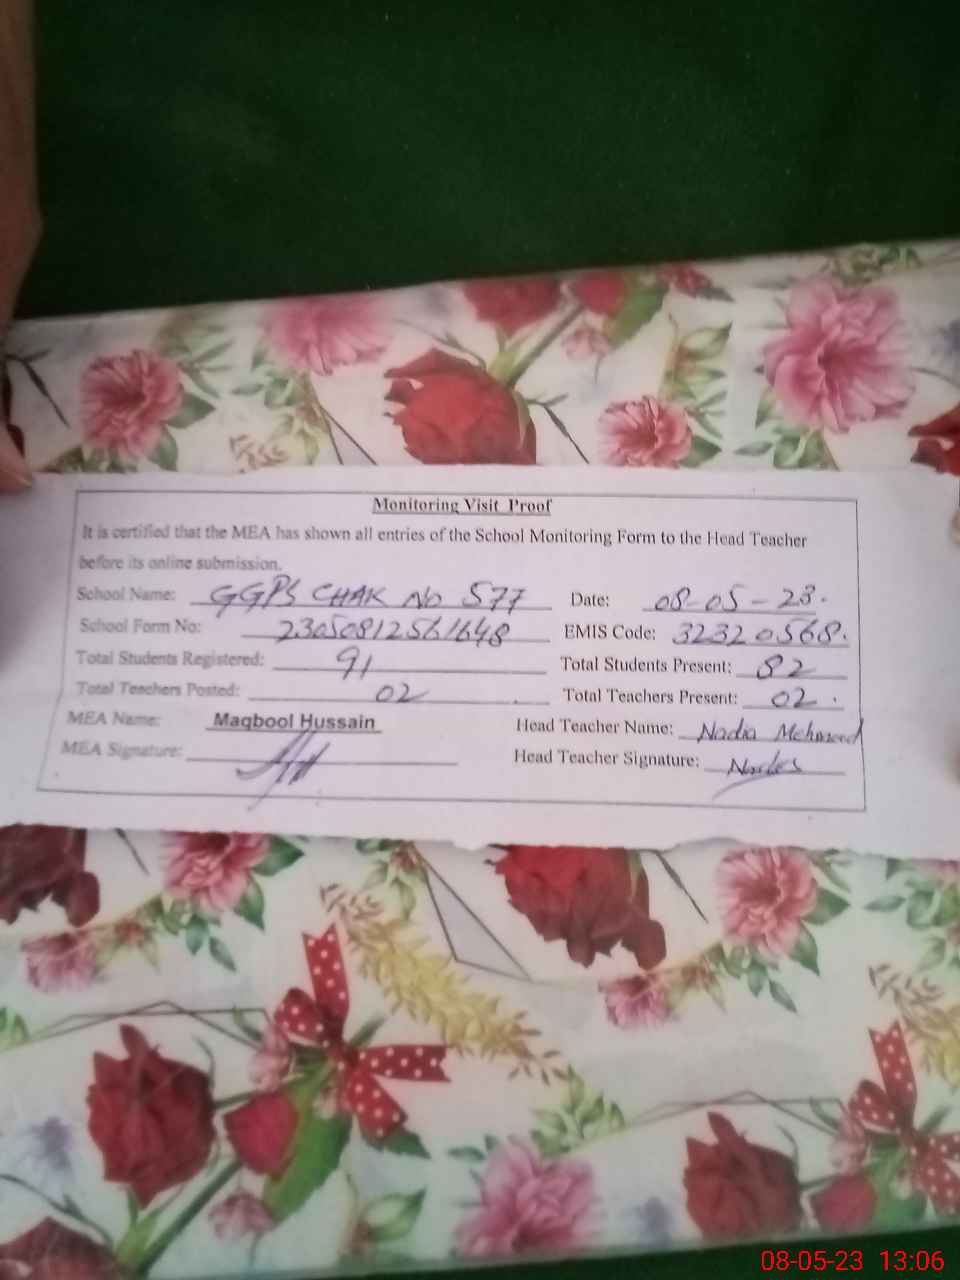 Monitoring Visit Proof
It is certified that the MEA has shown all entries of the School Monitoring Form to the Head Teacher
before its online submission.
School Name: GGPS CHAK NO 577 Date: 08-05-23.
School Form No: 23050812561648 EMIS Code: 32320568.
Total Students Registered: 91 Total Students Present: 82
Total Teachers Posted: 02 Total Teachers Present: 02.
MEA Name: Maqbool Hussain Head Teacher Name: Nadia Mehmood
MEA Signature: Head Teacher Signature:
08-05-23 13:06